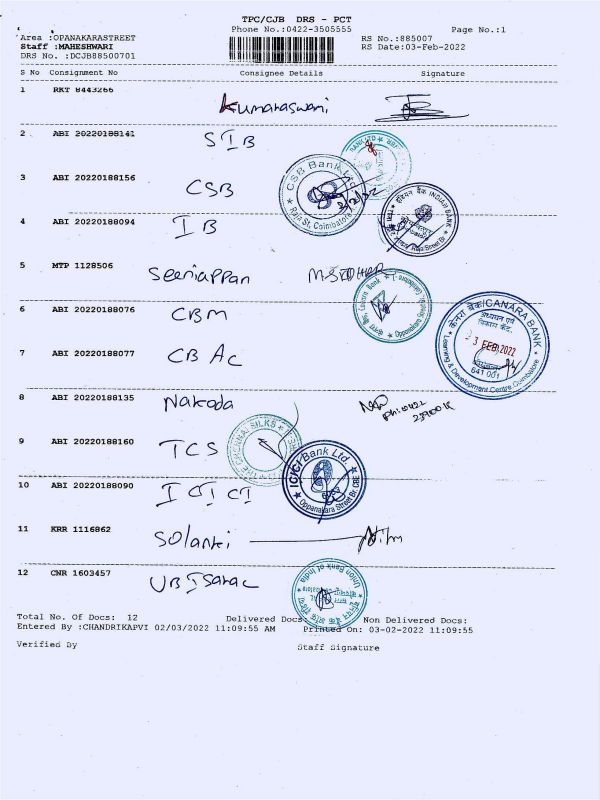 TPC/CJB DRS - PCT
Phone No.:0422-3505555
Page No.:1
Area :OPANAKARASTREET
RS No.:885007
Staff :MAHESHWARI
RS Date:03-Feb-2022
DRS No. :DCJB88500701
S No Consignment No Consignee Details Signature
1 RKT 8443266
Kumaraswami
2 ABI 20220188141 SIB
3 ABI 20220188156 CSB
CSB Bank Ltd
Raja St, Coimbatore
4 ABI 20220188094 IB
INDIAN BANK
5 MTP 1128506 Seeniappan M.SRIDHER
6 ABI 20220188076 CBM
केनरा बैंक/CANARA BANK
3 FEB 2022
641 001
Learning & Development Centre Coimbatore
7 ABI 20220188077 CB Ac
8 ABI 20220188135 Nakoda
9 ABI 20220188160 TCS
THE CHENNAI SILKS
ICICI Bank Ltd.
Oppanakara Street Br. CBE
10 ABI 20220188090 ICICI
11 KRR 1116862 Solanki
12 CNR 1603457
Union Bank of India
Total No. Of Docs: 12 Delivered Docs: Non Delivered Docs:
Entered By :CHANDRIKAPVI 02/03/2022 11:09:55 AM Printed On: 03-02-2022 11:09:55
Verified By Staff Signature